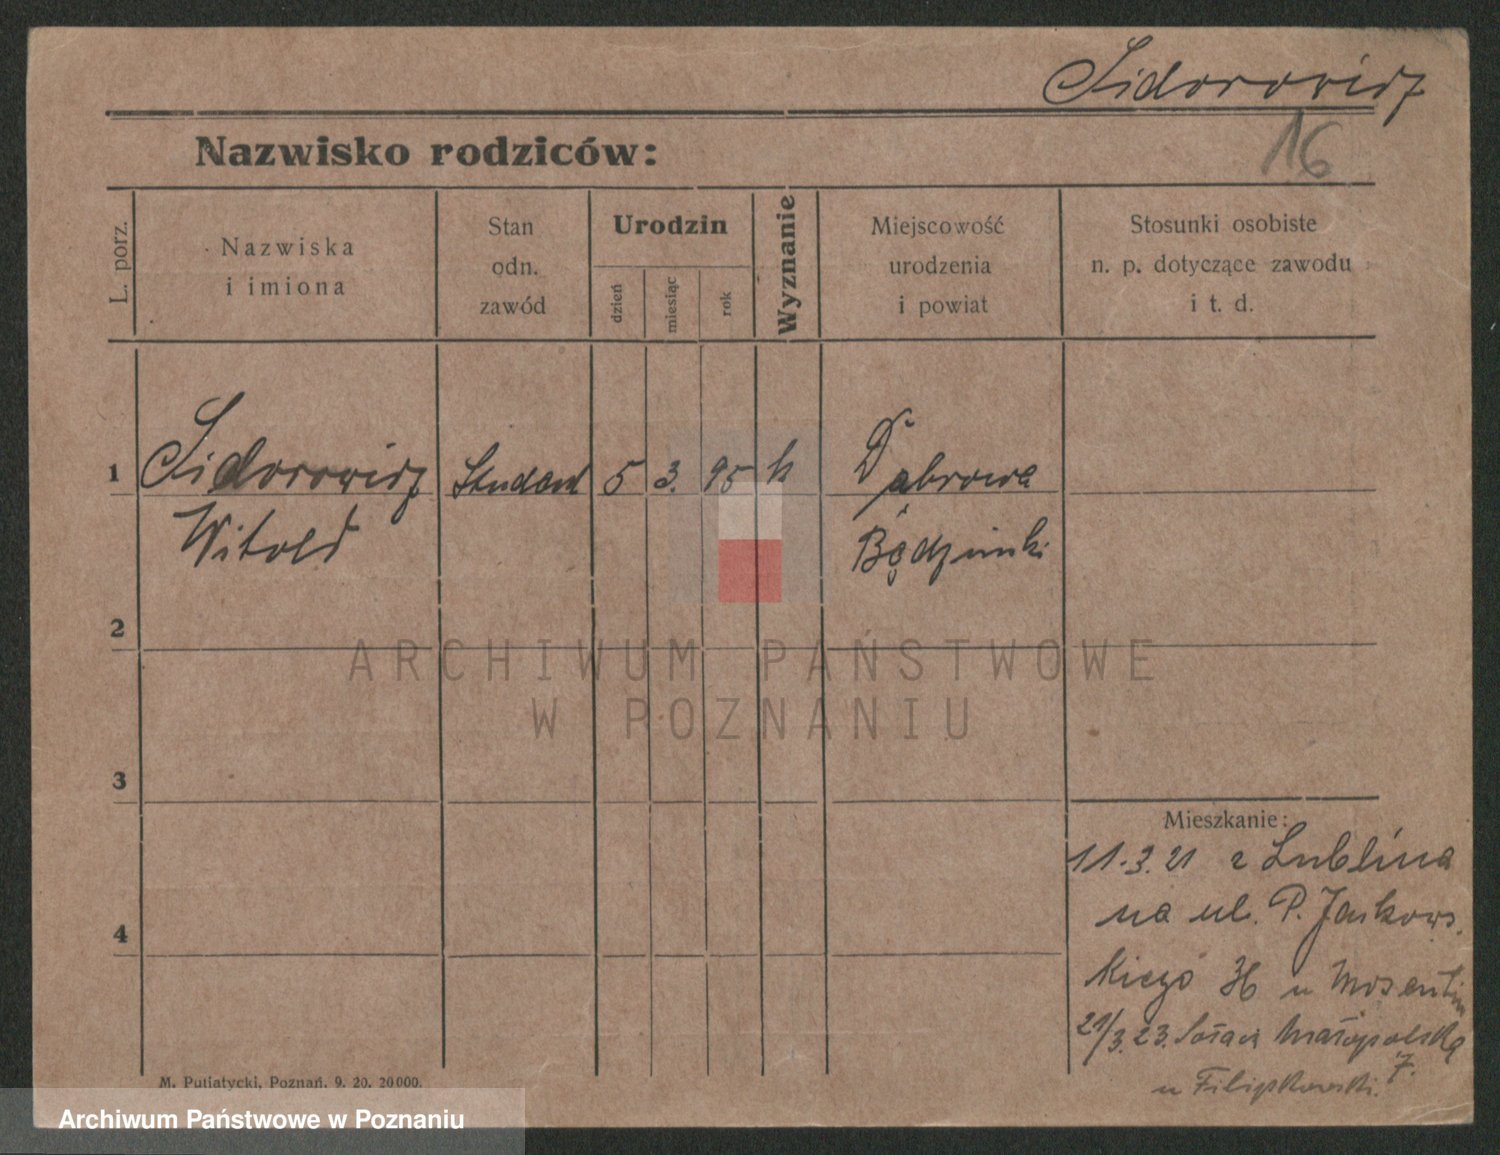 Sidorowicz
16
Nazwisko rodziców:
L. porz.
Nazwiska
i imiona
Stan
odn.
zawód
Urodzin
dzień
miesiąc
rok
Wyznanie
Miejscowość
urodzenia
i powiat
Stosunki osobiste
n. p. dotyczące zawodu
i t. d.
1 Sidorowicz Student 5 3. 95 k Dąbrowa
Witold Będzinski
2
3
4
Mieszkanie:
11.3.21 z Lublina
na ul. P. Jackows.
kiego 36 u
21/3.23. Sołacz Małopolska
7.
u Filipkowski.
M. Putiatycki, Poznań. 9. 20. 20000.
ARCHIWUM PAŃSTWOWE
W POZNANIU
Archiwum Państwowe w Poznaniu